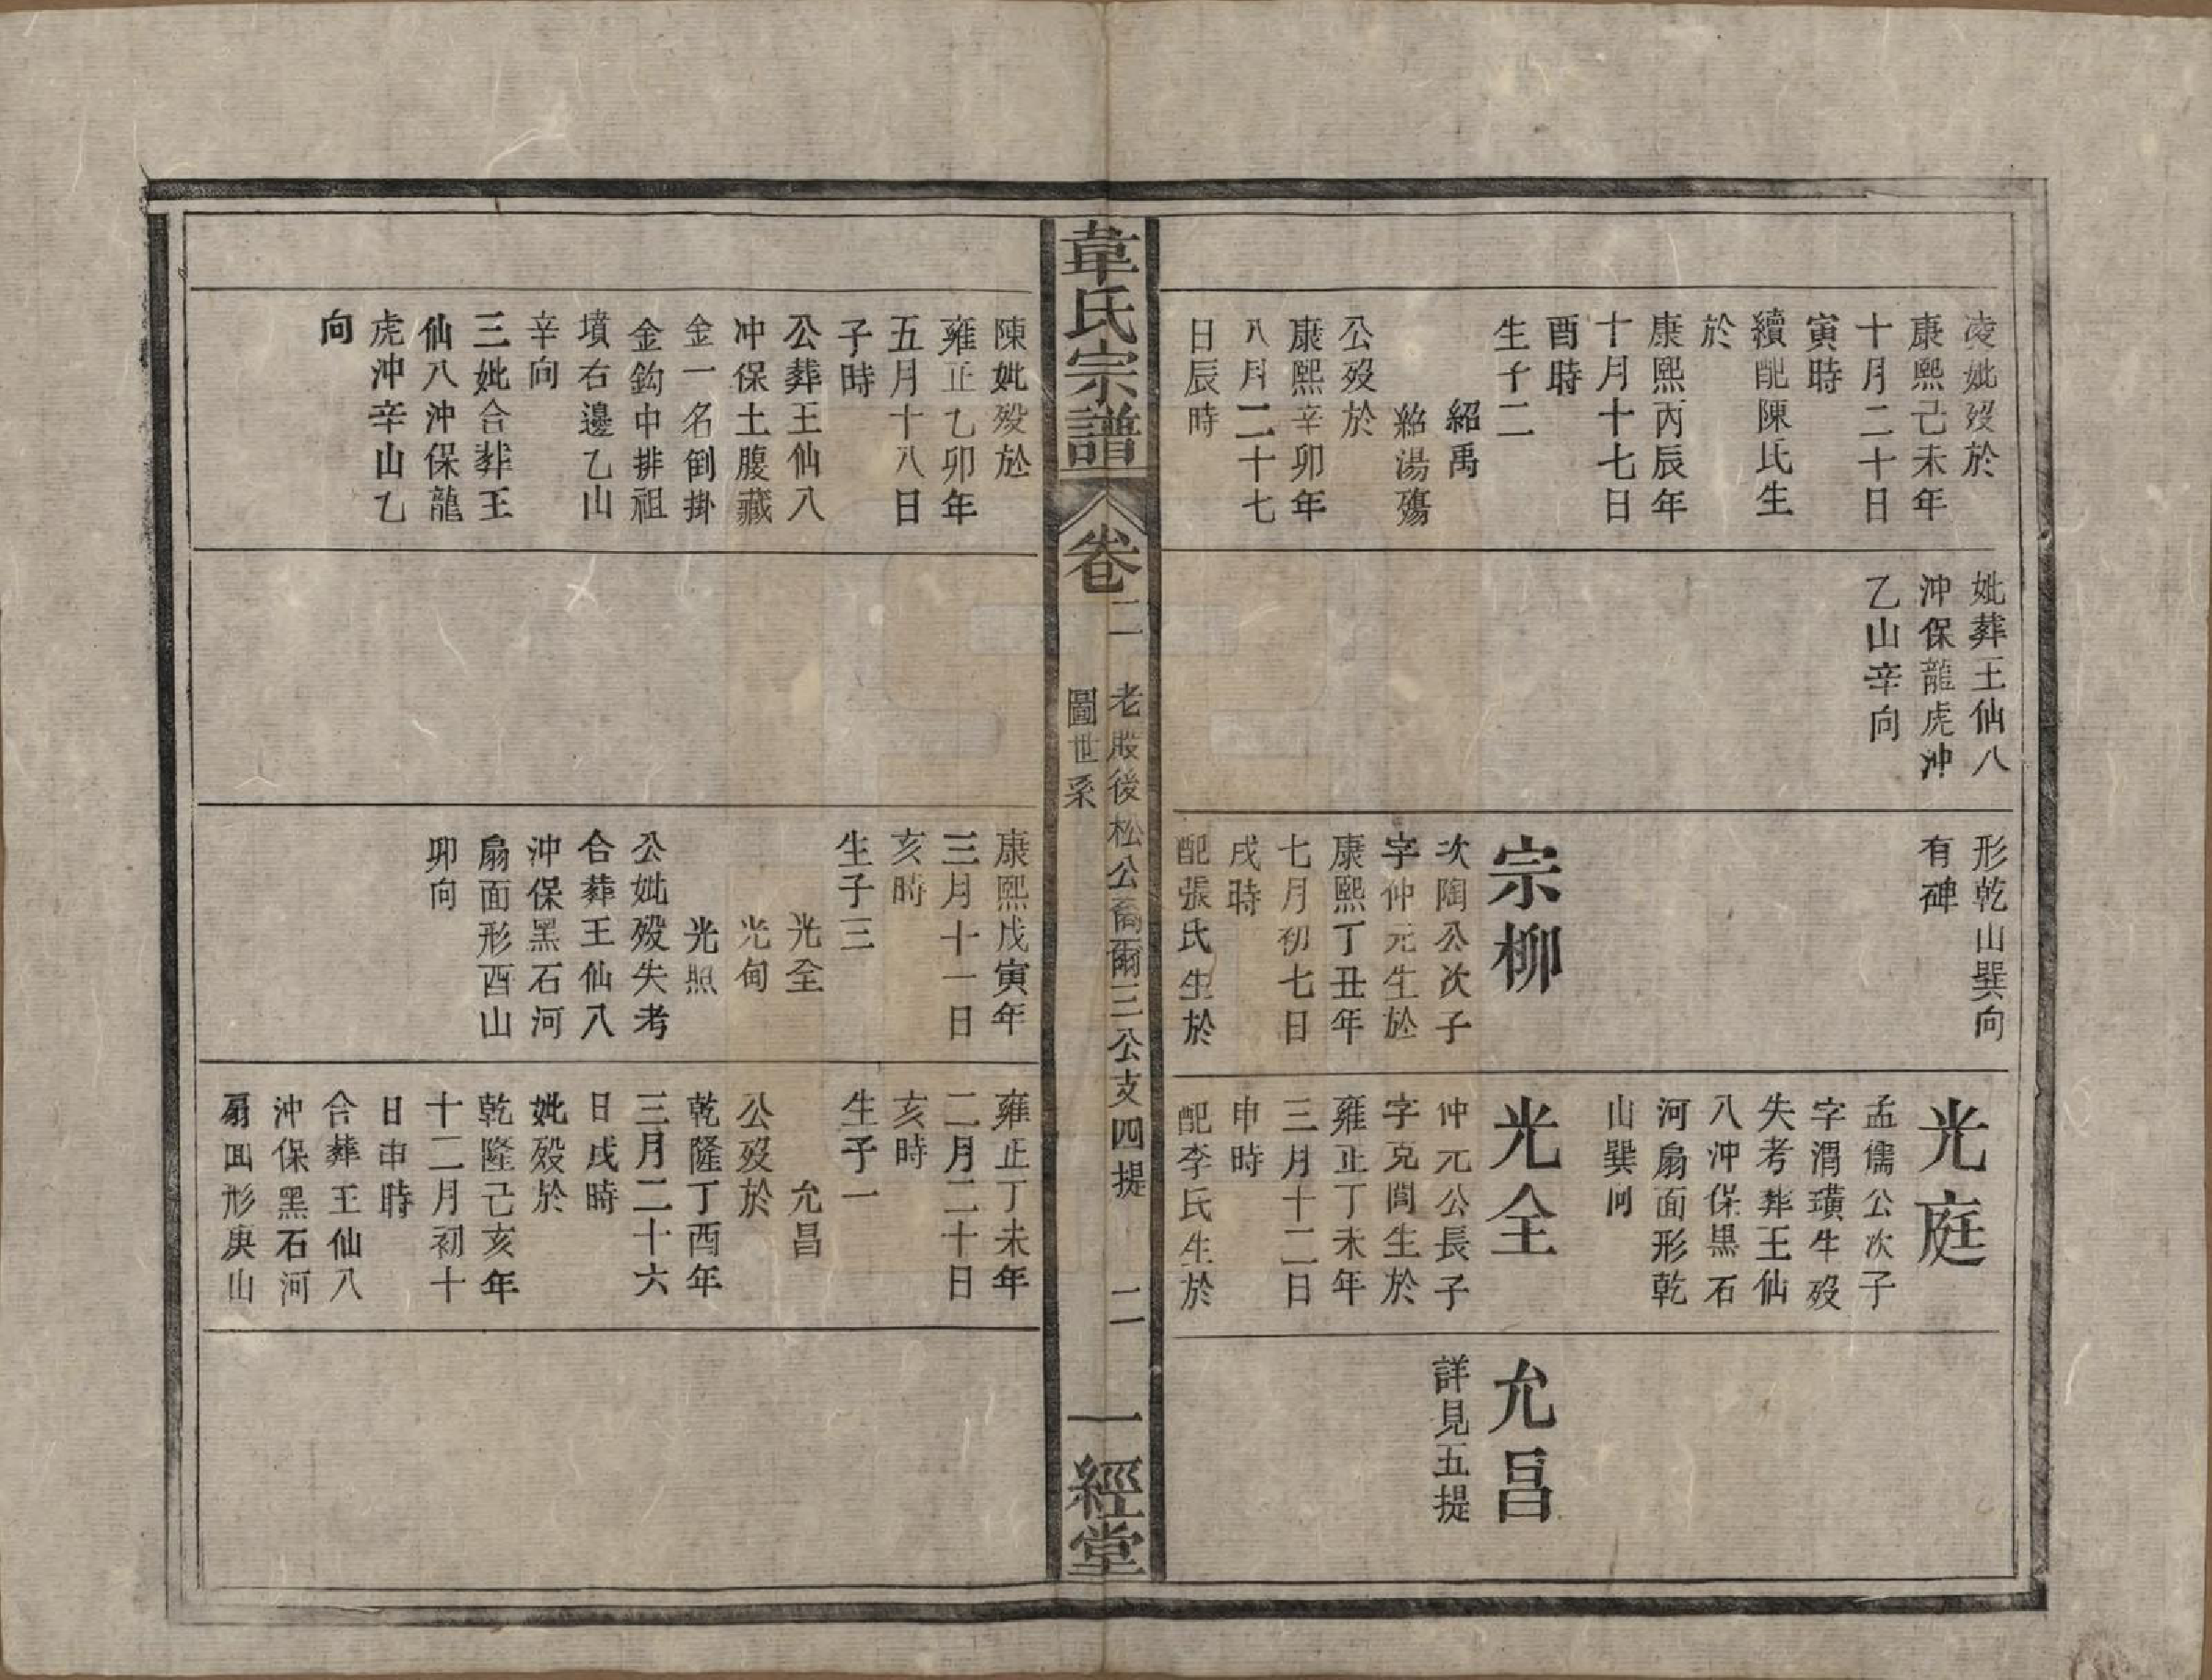 凌妣歿於
康熙己未年
十月二十日
寅時
續配陳氏生
於
康熙丙辰年
十月十七日
酉時
生子二
紹禹
紹湯殤
公歿於
康熙辛卯年
八月二十七
日辰時
妣葬王仙八
沖保龍虎沖
乙山辛向
形乾山巽向
有碑
宗柳
次陶公次子
字仲元生於
康熙丁丑年
七月初七日
戌時
配張氏生於
光庭
孟儒公次子
字渭璜生歿
失考葬王仙
八沖保黑石
河扇面形乾
山巽向
光全
仲元公長子
字克閶生於
雍正丁未年
三月十二日
申時
配李氏生於
允昌
詳見五提
韋氏宗譜
卷二
老股後松公裔爾三公支四提
圖世系
二
一經堂
陳妣歿於
雍正乙卯年
五月十八日
子時
公葬王仙八
沖保土腹藏
金一名倒掛
金鈎中排祖
墳右邊乙山
辛向
三妣合葬王
仙八沖保龍
虎沖辛山乙
向
康熙戊寅年
三月十一日
亥時
生子三
光全
光甸
光照
公妣歿失考
合葬王仙八
沖保黑石河
扇面形酉山
卯向
雍正丁未年
二月二十日
亥時
生子一
允昌
公歿於
乾隆丁酉年
三月二十六
日戌時
妣歿於
乾隆己亥年
十二月初十
日申時
合葬王仙八
沖保黑石河
扇面形庚山